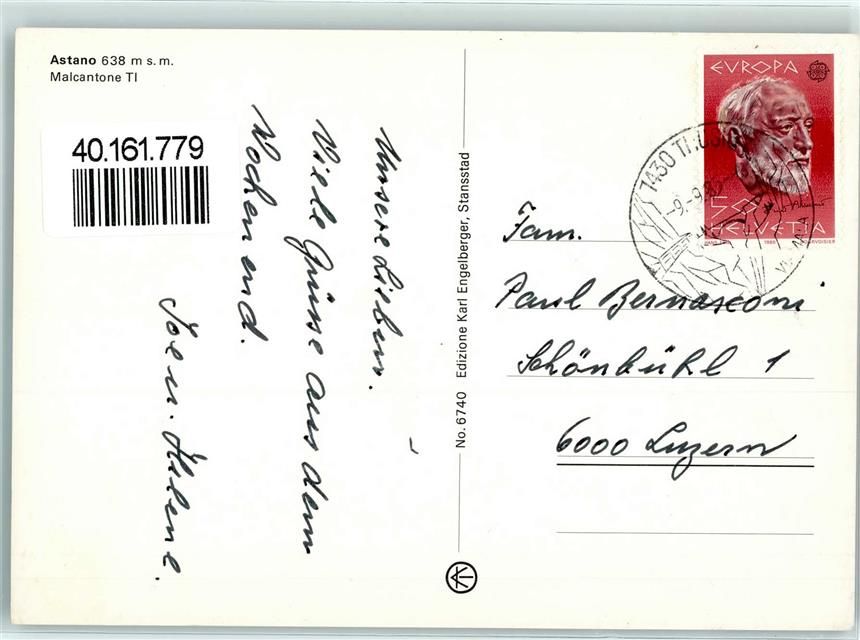 Astano 638 m s. m.
Malcantone TI
40.161.779
Unsere Lieben.
Viele Grüsse aus dem
Wochenend.
Joe u. Helene.
No. 6740 Edizione Karl Engelberger, Stansstad
EVROPA
50
HELVETIA
1986
COURVOISIER
-9.-9.
Fam.
Paul Bernasconi
Schönbühl 1
6000 Luzern